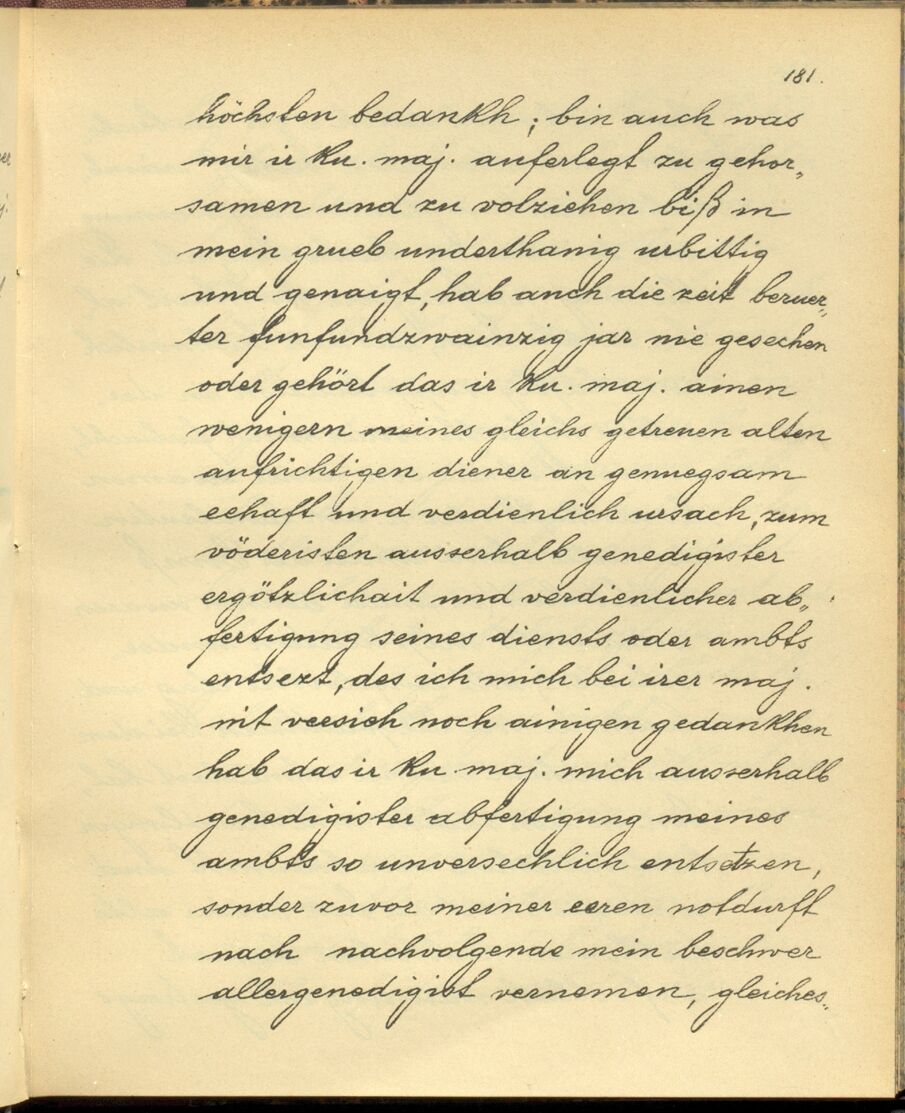 181.
höchsten bedankh; bin auch was
mir ir Ku. maj. auferlegt zu gehor„
samen und zu volziehen biß in
mein grueb underthanig urbittig
und genaigt, hab auch die zeit beruer„
ter funfundzwainzig jar nie gesechen
oder gehört das ir Ku. maj. ainen
wenigern meines gleichs getreuen alten
aufrichtigen diener an genuegsam
eehaft und verdienlich ursach, zum
vöderisten ausserhalb genedigister
ergötzlichait und verdienlicher ab„
fertigung seines diensts oder ambts
entsezt, des ich mich bei irer maj.
nit versich noch ainigen gedankhen
hab das ir Ku maj. mich ausserhalb
genedigister abfertigung meines
ambts so unversechlich entsetzen,
sonder zuvor meiner eeren notdurft
nach nachvolgende mein beschwer
allergenedigist vernemen, gleiches„